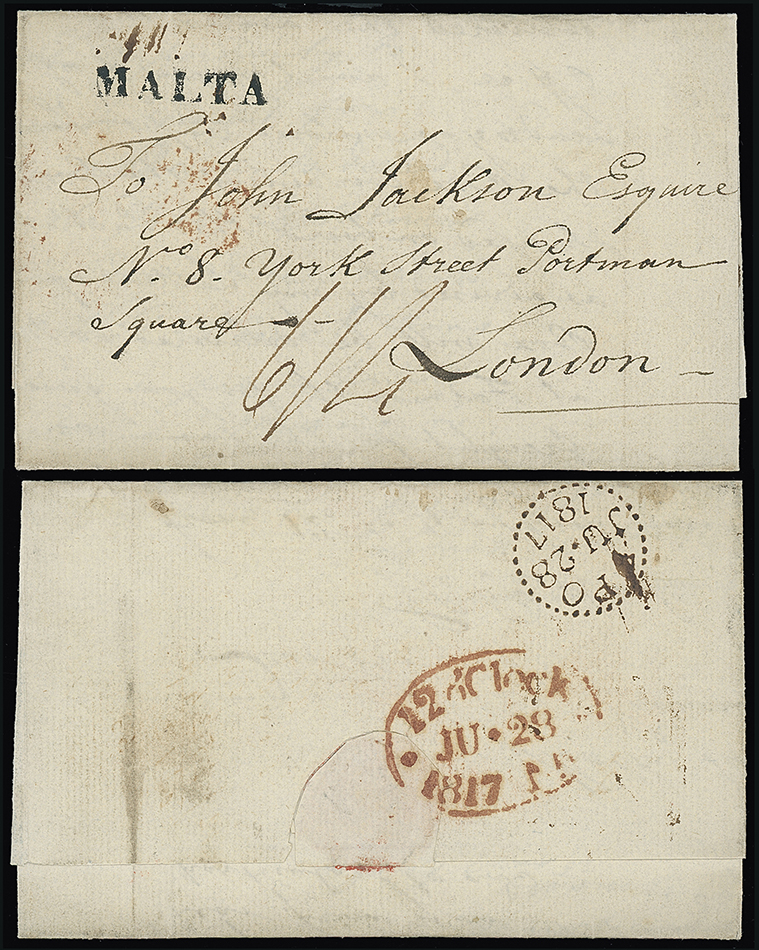 MALTA
To John Jackson Esquire
No. 8. York Street Portman
Square
London
1817
JU·28
PO
12 o'Clock
JU·28
1817